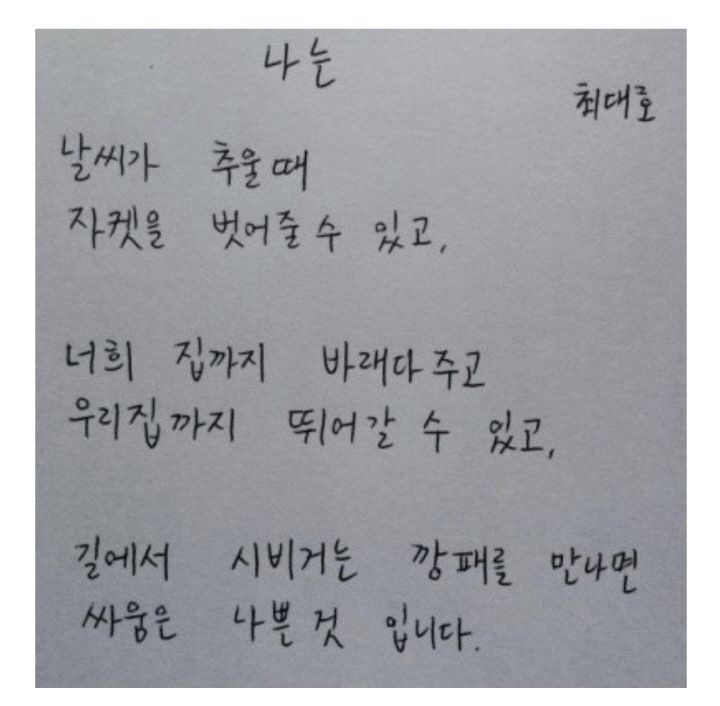 나는
최대호
날씨가 추울때
자켓을 벗어줄 수 있고,
너희 집까지 바래다 주고
우리집까지 뛰어갈 수 있고,
길에서 시비거는 깡패를 만나면
싸움은 나쁜 것 입니다.